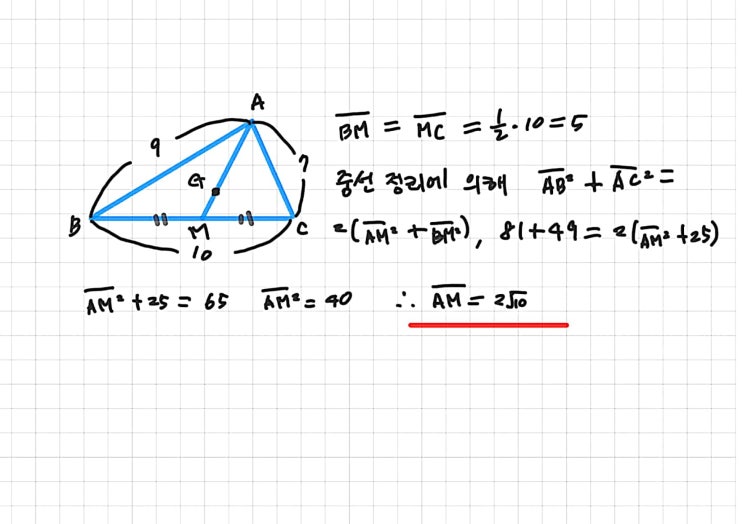 A
9
7
G
B
M
C
10
BM = MC = 1/2 · 10 = 5
중선 정리에 의해 AB² + AC² =
2(AM² + BM²), 81+49 = 2(AM² + 25)
AM² + 25 = 65 AM² = 40 ∴ AM = 2√10